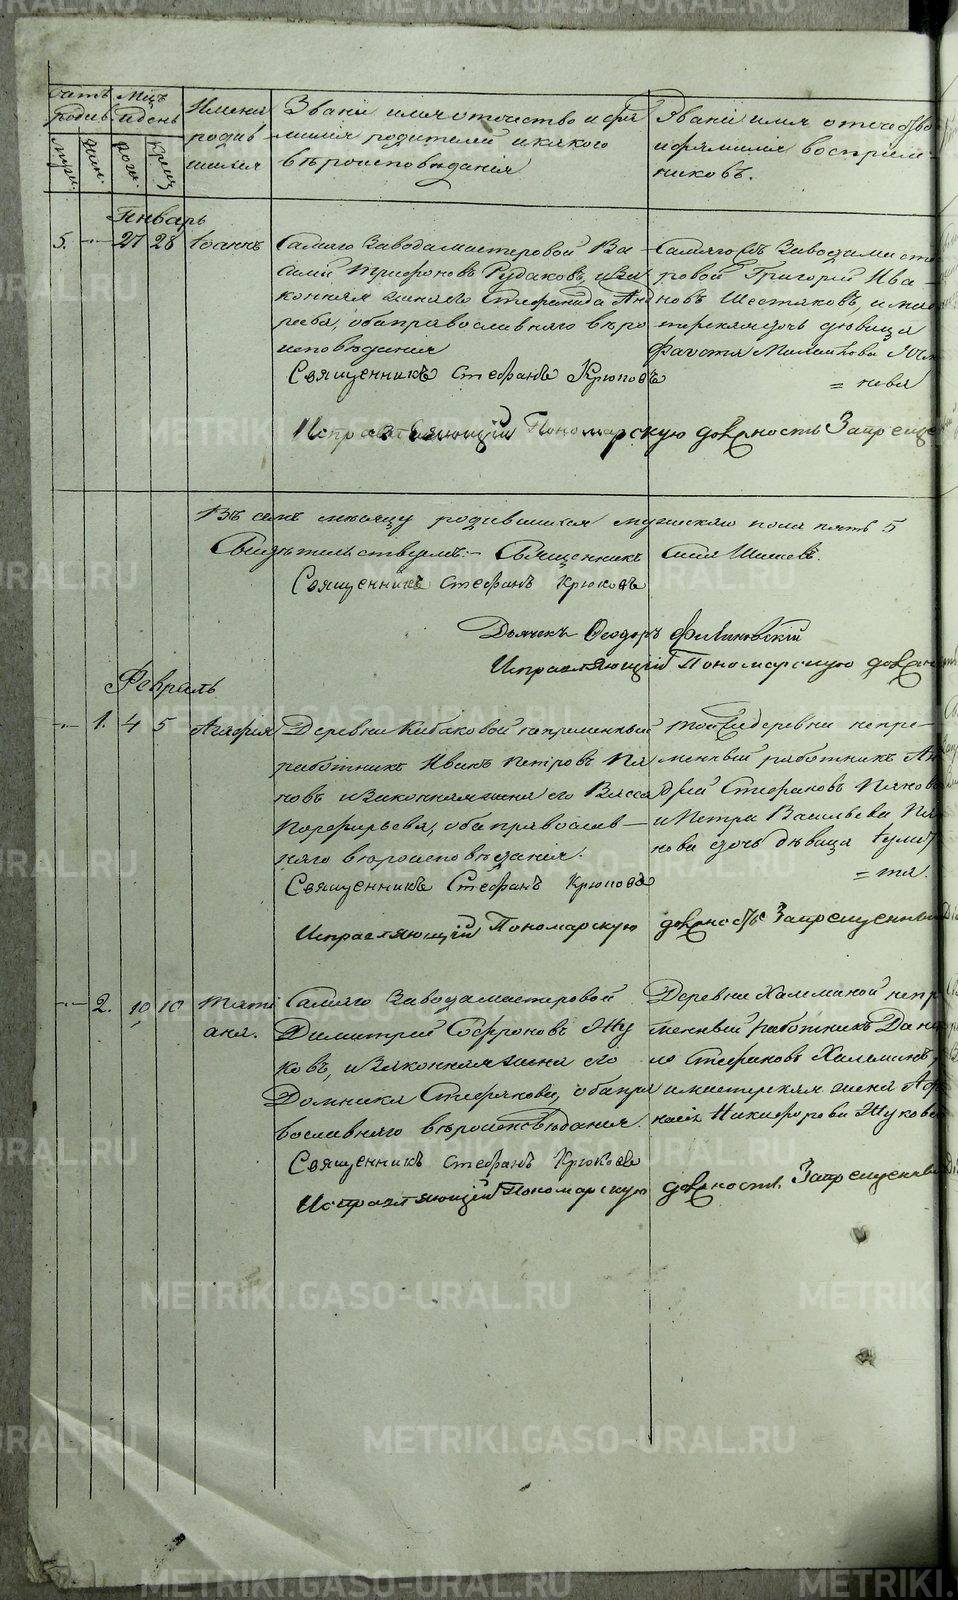 METRIKI.GASO-URAL.RU
Счетъ родив. Мѣц. и день Имена родив- шихся
Званіе имя отечество и фа- милія родителей и какого вѣроисповѣданія
Званіе имя отечество и фамилія воспріем- никовъ.
муж. жен. рож. крещ.
Январь
5. 27 28 Іоаннъ
Самаго Завода мастеровой Ва-
силій Трифоновъ Рудаковъ, и за-
конная жена его Степанида Анд-
реева, оба православнаго вѣро-
исповѣданія
Самаго Завода масте-
ровой Григорій Ива-
новъ Шестаковъ, и мас-
терская дочь дѣвица
= нова
Священникъ Стефанъ Крюковъ
Исправляющій Пономарскую должность Запреще
Въ семъ мѣсяцѣ родившихся мужскаго пола пять 5
Свидѣтельствуемъ:- Священникъ
Священникъ Стефанъ Крюковъ
Дьячекъ Феодоръ
Исправляющій Пономарскую должн
Февраль
1. 4 5 Агафія
Деревни Кибаковой непременный
работникъ Иванъ Петровъ Пя-
новъ и законная жена его Васса
Порфирьева, оба православ-
наго вѣроисповѣданія.
той же деревни непре-
менный работникъ Ан
дрей Стефановъ Пянов
и Петра Васильева Пя
нова дочь дѣвица Іулит
= та
Священникъ Стефанъ Крюковъ
Исправляющій Пономарскую должность Запрещенный
2. 10 10 Тати-
ана.
Самаго Завода мастеровой
Димитрій Софроновъ Жу-
ковъ, и законная жена его
Домника Стефанова, оба пра-
вославнаго вѣроисповѣданія.
Деревни Халеминой непр
менный работникъ Дани
ло Стефановъ Халеминъ,
и мастерская жена
Никифорова Жукова
Священникъ Стефанъ Крюковъ
Исправляющій Пономарскую должность Запрещенный